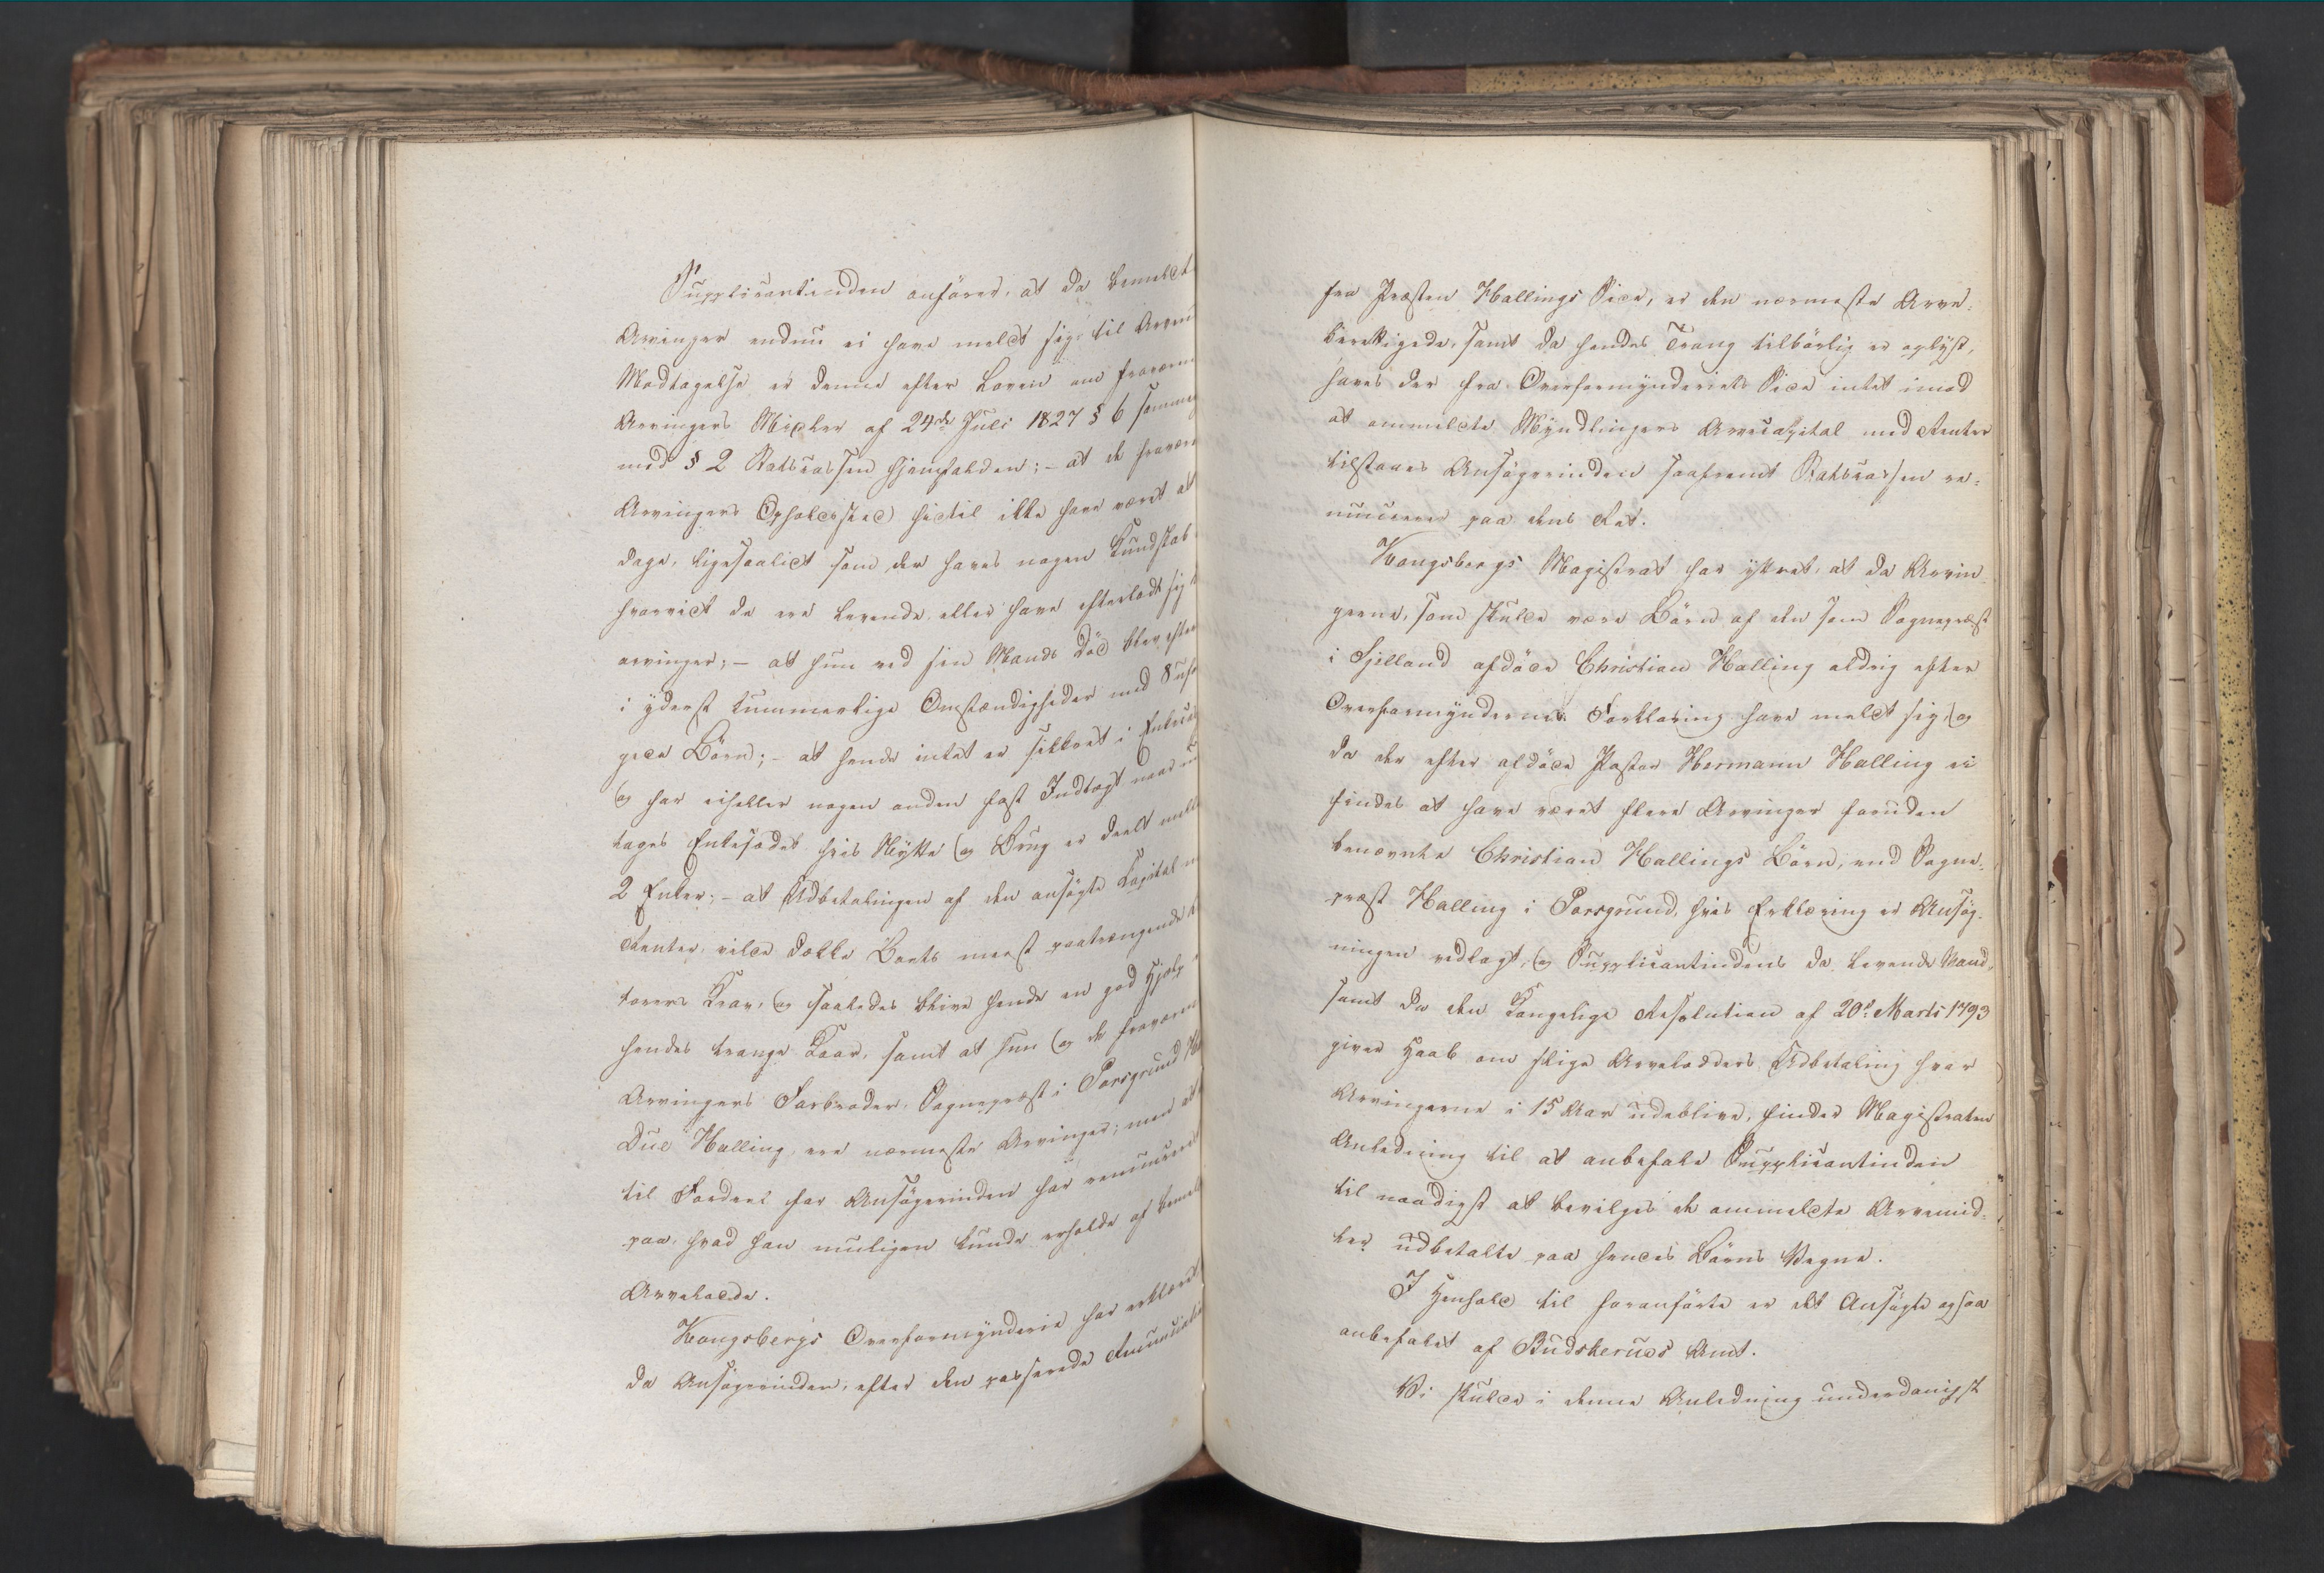 Supplicantinden anfører, at da bemeldte
Arvinger endnu ei have meldt sig til Arvens
Modtagelse er denne efter Loven om fraværende
Arvingers Midler af 24de Juli 1827 § 6 sammen
med § 2 Statscassen hjemfalden; - at de fraværende
Arvingers Opholdssted hidtil ikke have været at op
dage, ligesaalidt som der haves nogen Kundskab
hvorvidt de ere levende, eller have efterladt sig
arvinger; - at hun ved sin Mands Død blev efterladt
i yderst kummerlige Omstændigheder med 8 ufor
gede Børn; - at hende intet er sikkret i Enkecassen
og har eiheller nogen anden fast Indtægt naar und
tages Enkesædet hvis Nytte og Brug er deelt mellem
2 Enker; - at Udbetalingen af den ansøgte Capital med
Renter, vilde dække Boets meest paatrængende Kredi
torers Krav, og saaledes blive hende en god Hjelp i
hendes trange Kaar, samt at hun og de fraværende
Arvingers Farbroder, Sognepræst i Porsgrund
Due Halling, ere nærmeste Arvinger; men at
til Fordeel for Ansøgerinden har renunceret
paa, hvad han muligen kunde erholde af bemeldte
Arvelodde.
Kongsbergs Overformynderie har erklæret
da Ansøgerinden, efter den passerede Renunciation
fra Præsten Hallings Side, er den nærmeste Arve-
berettigede, samt da hendes Trang tilbørlig er oplyst,
haves der fra Overformynderiets Side intet imod
at ommeldte Myndlingers Arvecapital med Renter
tilstaaes Ansøgerinden saafremt Statscassen re-
nuncerer paa dens Ret.
Kongsbergs Magistrat har yttret, at da Arvin-
gerne, som skulde være Børn af den som Sognepræst
i Sjelland afdøde Christian Halling aldrig efter
Overformyndernes Forklaring have meldt sig, og
da der efter afdøde Pastor Hermann Halling ei
findes at have været flere Arvinger foruden
benævnte Christian Hallings Børn, end Sogne-
præst Halling i Porsgrund, hvis Erklæring er Ansøg-
ningen vedlagt, og Supplicantindens da levende Mand,
samt da den Kongelige Resolution af 20de Marts 1793
giver Haab om slige Arvelodders Udbetaling hvor
Arvingerne i 15 Aar udeblive, finder Magistraten
Anledning til at anbefale Supplicantinden
til naadigst at bevilges de ommeldte Arvemid-
ler udbetalte paa hendes Børns Vegne.
I Henhold til foranførte er det Ansøgte ogsaa
anbefalet af Budskeruds Amt.
Vi skulde i denne Anledning underdanigst